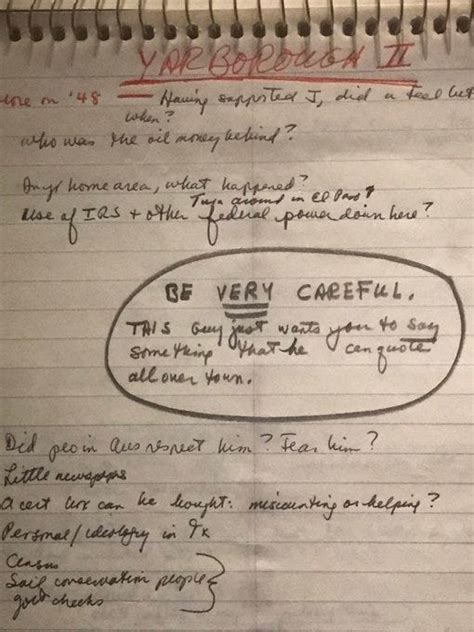 YARBOROUGH II
on '48 — Having supported J, did u feel bet
when?
who was the oil money behind?
In yr home area, what happened?
Turn around in El Paso?
Use of IRS + other federal power down here?
BE VERY CAREFUL.
THIS Guy just wants you to say
something that he can quote
all over town.
Did peo in Aus respect him? Fear him?
Little newspaps
A cert can be bought: miscounting or helping?
Personal/ideology in Tx
Census
Soil conservation people
govt checks